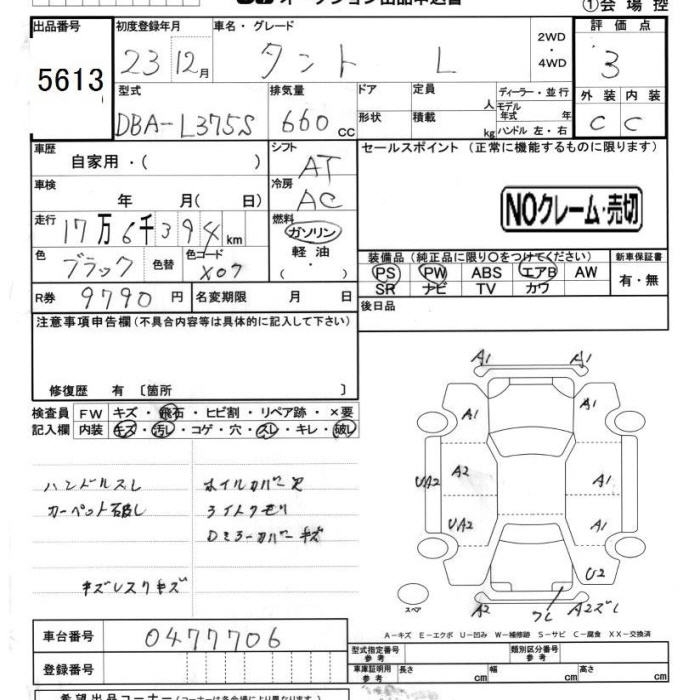 ①会場控
出品番号 初度登録年月 車名・グレード 2WD ・ 4WD 評価点
5613 23 12月 タント L 3
型式 排気量 ドア 定員 人 ディーラー・並行 外装 内装
DBA-L375S 660 cc 形状 積載 kg モデル年式 年 ハンドル 左・右 C C
車歴 自家用・( ) シフト AT セールスポイント (正常に機能するものに限ります)
車検 年 月( 日) 冷房 AC
NOクレーム・売切
走行 17万6千394km 燃料 ガソリン 軽油 ・( )
色 ブラック 色替 色コード X07
装備品 (純正品に限り○をつけてください) 新車保証書
PS PW ABS エアB AW 有・無
SR ナビ TV カワ
R券 9790円 名変期限 月 日 後日品
注意事項申告欄 (不具合内容等は具体的に記入して下さい)
修復歴 有 〔箇所 〕
検査員 FW キズ・飛石・ヒビ割・リペア跡・×要
記入欄 内装 キズ・汚レ・コゲ・穴・スレ・キレ・破レ
ハンドルスレ ホイルカバー欠
カーペット破レ ライトクモリ
Dミラーカバーキズ
キズレスリキズ
A1 A1
A1 A1
UA2 A2 A1
UA2 A1
U2
スペア A2 フレ A2ズレ
A-キズ E-エクボ U-凹み W-補修跡 S-サビ C-腐食 XX-交換済
車台番号 0477706
型式指定番号 参考 類別区分番号 参考
登録番号
車庫証明用 参考 長さ cm 幅 cm 高さ cm
希望出品コーナー